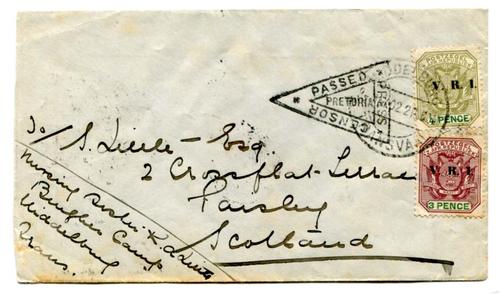 PASSED
PRESS
PRETORIA
CENSOR
V. R. I.
½ PENCE
V. R. I.
3 PENCE
To/ S. Lillie - Esq.
2 Crossflat-Terrace
Paisley
Scotland
Nursing Sister K
Burgher Camp
Middelburg
Trans.